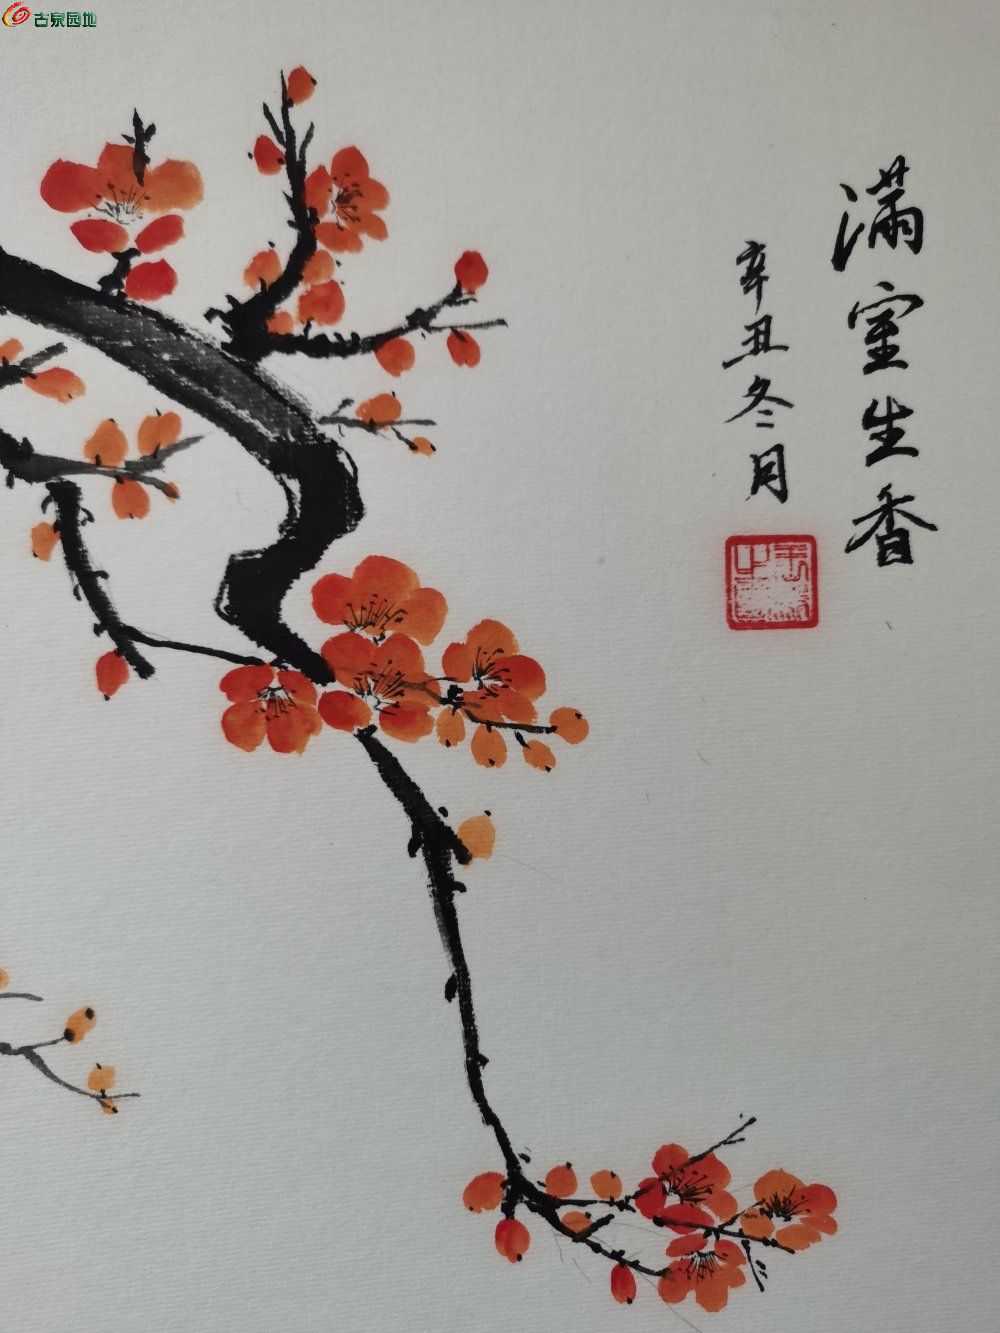 古泉园地
满室生香
辛丑冬月